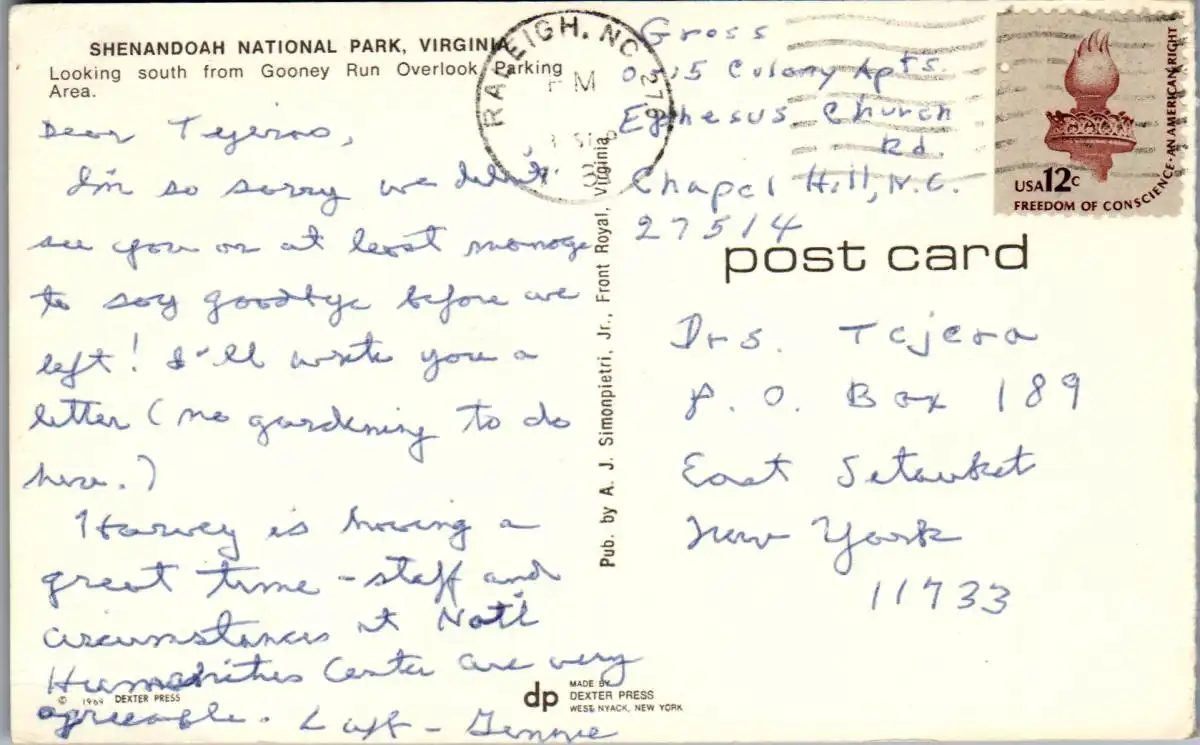 SHENANDOAH NATIONAL PARK, VIRGINIA
Looking south from Gooney Run Overlook Parking
Area.
Dear Tejeras,
I'm so sorry we didn't
see you or at least manage
to say goodbye before we
left! I'll write you a
letter (no gardening to do
here.)
Harvey is having a
great time - staff and
circumstances at Natl
Humanities Center are very
agreeable.
© 1969 DEXTER PRESS
RALEIGH, NC 276
PM
Pub. by A. J. Simonpietri, Jr., Front Royal, Virginia
dp
MADE BY
DEXTER PRESS
WEST NYACK, NEW YORK
Gross
Colony Apts.
Ephesus Church
Rd.
Chapel Hill, N.C.
27514
USA 12c
FREEDOM OF CONSCIENCE - AN AMERICAN RIGHT
post card
Drs. Tejera
P. O. Box 189
East Setauket
New York
11733